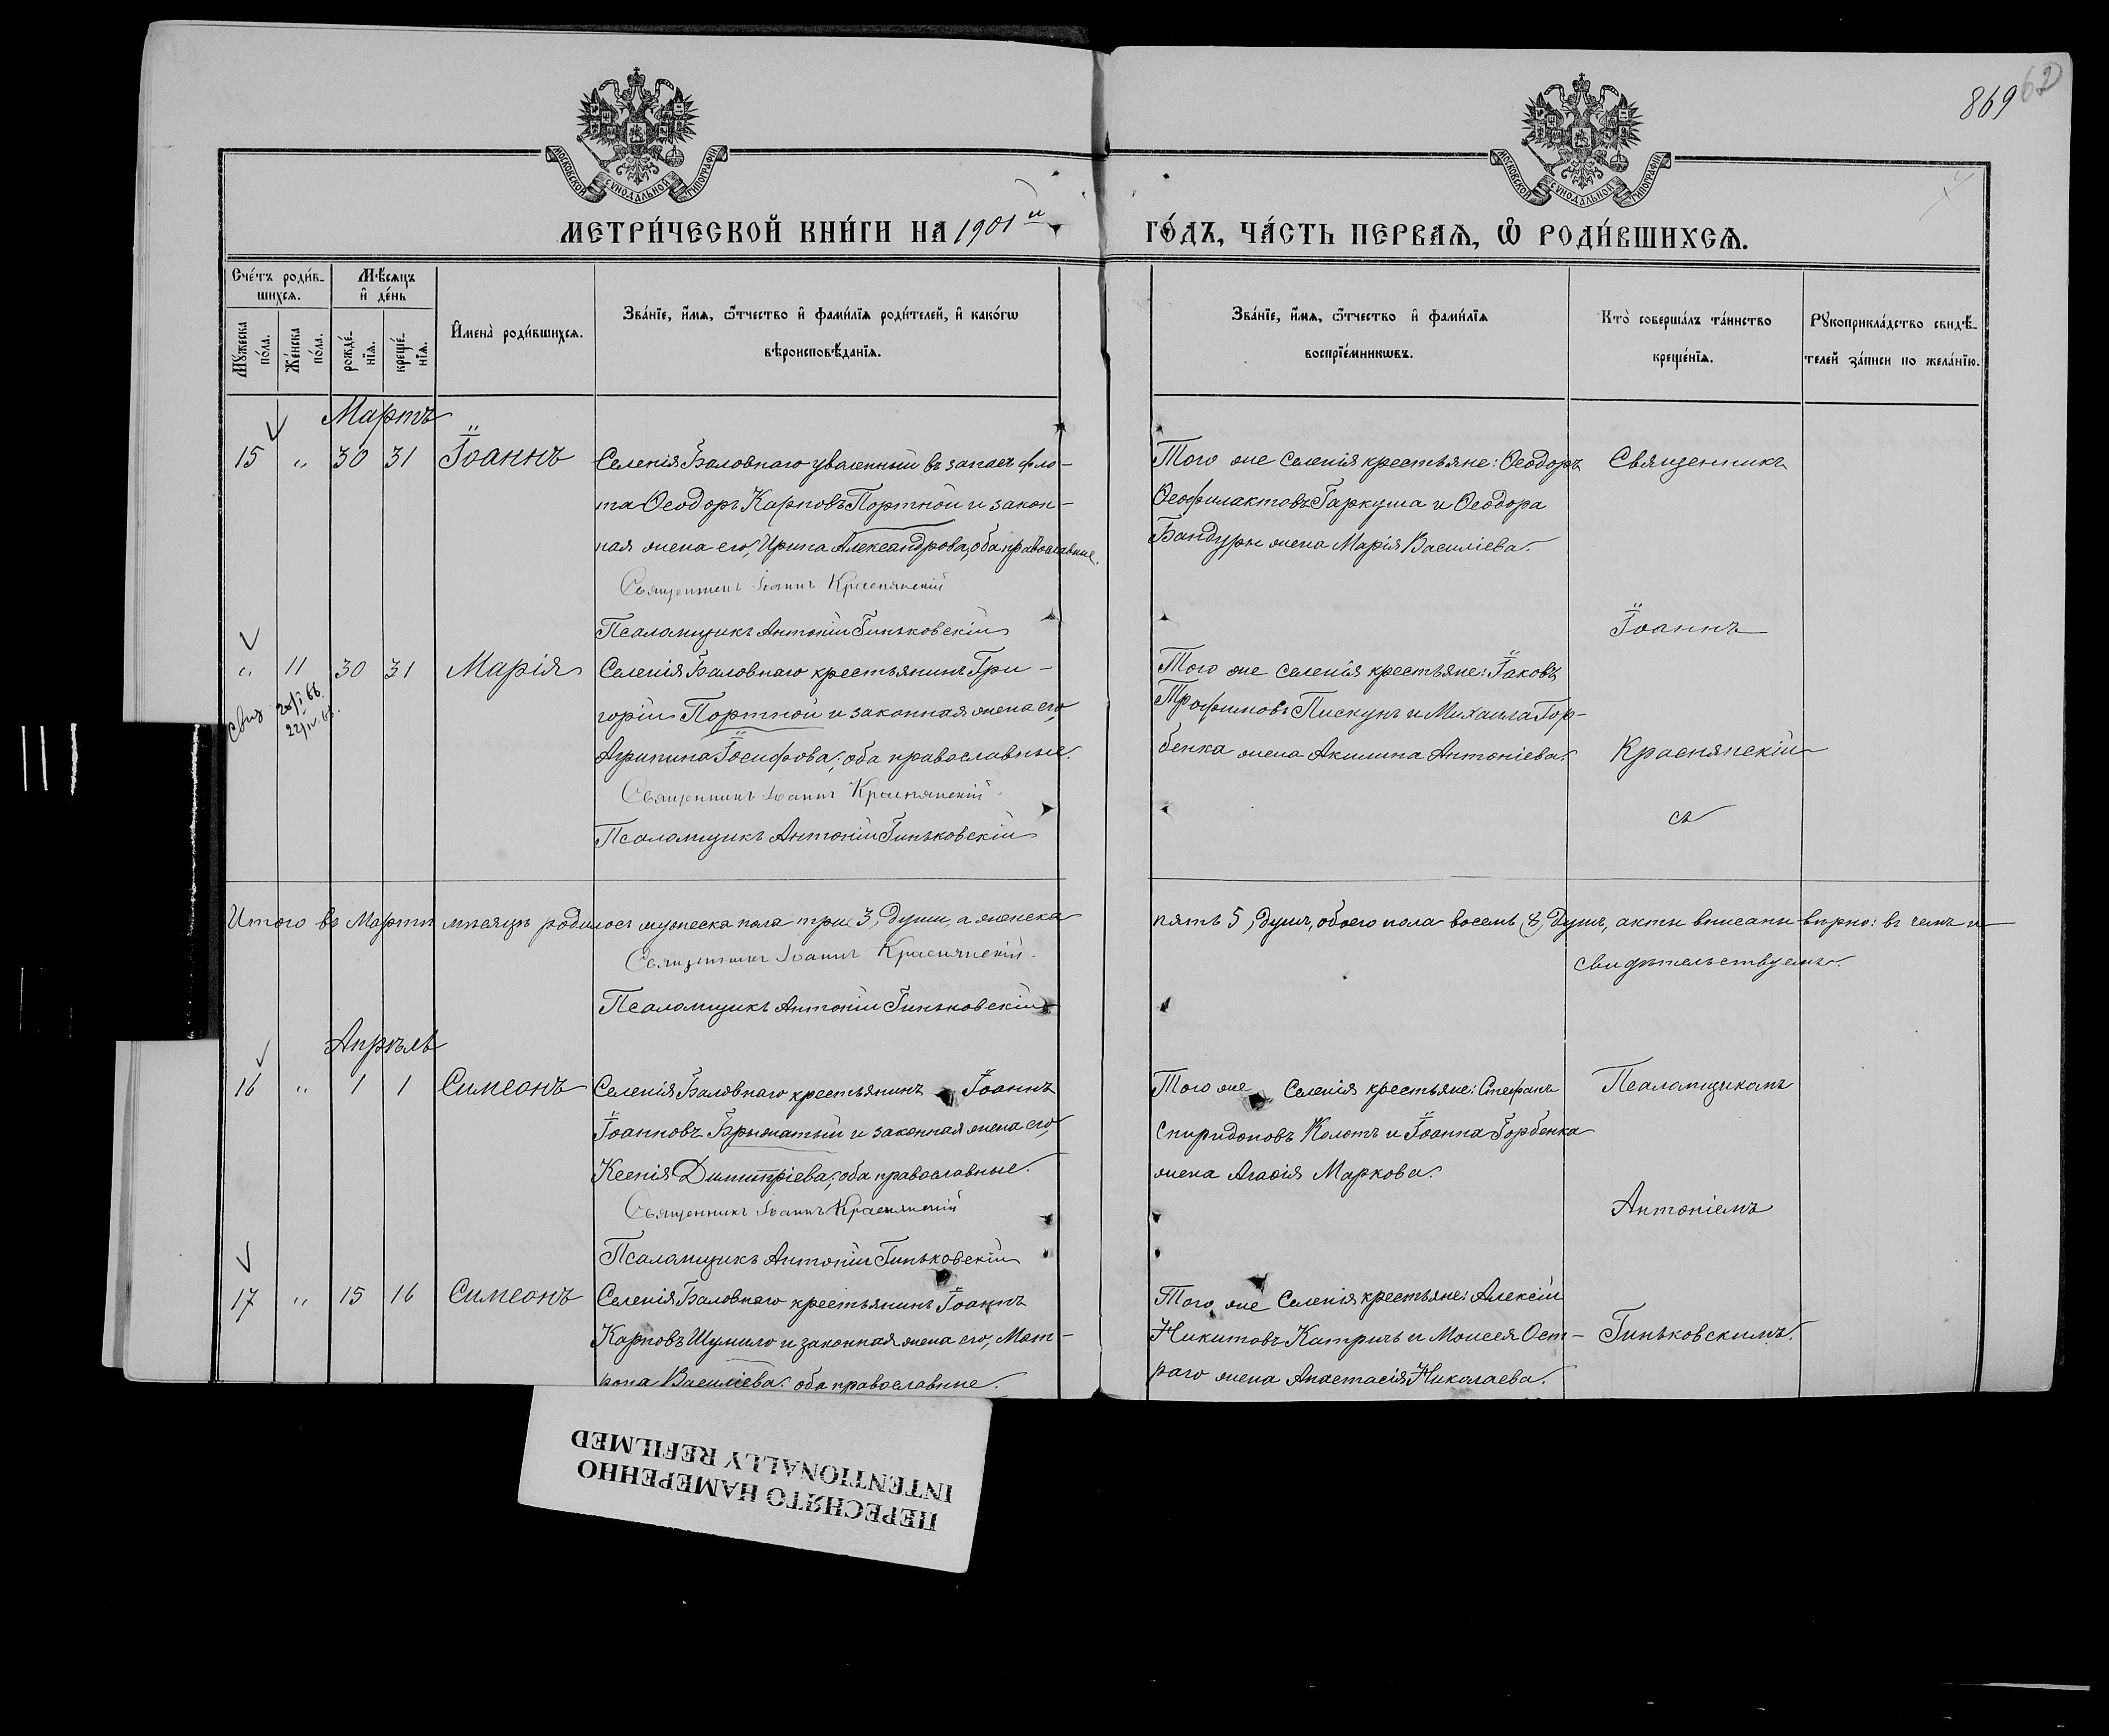 869 62
МОСКОВСКОЙ СѴНОДАЛЬНОЙ ТИПОГРАФІИ
МОСКОВСКОЙ СѴНОДАЛЬНОЙ ТИПОГРАФІИ
МЕТРИ́ЧЕСКОЙ КНИ́ГИ НА 1901й ГО́ДЪ, ЧА́СТЬ ПЕРВАѦ, Ѡ҆ РОДИ́ВШИХСѦ.
Сче́тъ роди́в-
шихсѧ.
Мѣ́сѧцъ
и҆ де́нь
Мꙋ́жеска
по́ла.
Же́нска
по́ла.
рожде́-
нїѧ.
креще́-
нїѧ.
И҆мена̀ роди́вшихсѧ.
Зва́нїе, и҆́мѧ, ѻ҆́тчество и҆ фами́лїѧ роди́телей, и҆ како́гѡ
вѣроисповѣ́данїѧ.
Зва́нїе, и҆́мѧ, ѻ҆́тчество и҆ фами́лїѧ
воспрїе́мникѡвъ.
Кто̀ соверша́лъ та́инство
креще́нїѧ.
Рꙋкоприкла́дство свидѣ́-
телей за́писи по жела́нїю.
Мартъ
15 " 30 31 Іоаннъ
Селенія Баловнаго уволенный въ запасъ фло-
та Ѳеодоръ Карповъ Портной и закон-
ная жена его, Ирина Александрова, оба православные.
Священникъ Іоаннъ Краснянскій
Псаломщикъ Антоній Гиньковскій
Того же селенія крестьяне: Ѳеодоръ
Ѳеофилактовъ Гаркуша и Ѳеодора
Бандуры жена Марія Василіева.
Священникъ
Іоаннъ
" 11 30 31 Марія
20/I 66.
22/IV.68.
Селенія Баловнаго крестьянинъ Гри-
горій Портной и законная жена его,
Агрипина Іосифова; оба православные.
Священникъ Іоаннъ Краснянскій
Псаломщикъ Антоній Гиньковскій
Того же селенія крестьяне: Іаковъ
Трофимовъ Пискунъ и Михаила Гор-
бенка жена Акилина Антоніева.
Краснянскій
съ
Итого въ Мартѣ мѣсяцѣ родилось мужеска пола три 3, души, а женска
пять 5, душъ, обоего пола восемь (8) душъ, акты вписаны вѣрно: въ чемъ и
свидѣтельствуемъ.
Священникъ Іоаннъ Краснянскій.
Псаломщикъ Антоній Гиньковскій
Апрѣль
16 " 1 1 Симеонъ
Селенія Баловнаго крестьянинъ Іоаннъ
Іоанновъ Брыжатый и законная жена его,
Ксенія Димитріева; оба православные.
Священникъ Іоаннъ Краснянскій
Псаломщикъ Антоній Гиньковскій
Того же Селенія крестьяне: Стефанъ
Спиридоновъ Колотъ и Іоанна Горбенка
жена Агафія Маркова.
Псаломщикомъ
Антоніемъ
17 " 15 16 Симеонъ
Селенія Баловнаго крестьянинъ Іоаннъ
Карповъ Шумило и законная жена его, Мат-
рона Василіева. оба православные.
Того же Селенія крестьяне: Алексій
Никитовъ Катричъ и Моисея Ост-
раго жена Анастасія Николаева.
Гиньковскимъ.
ПЕРЕСНЯТО НАМЕРЕННО
INTENTIONALLY REFILMED